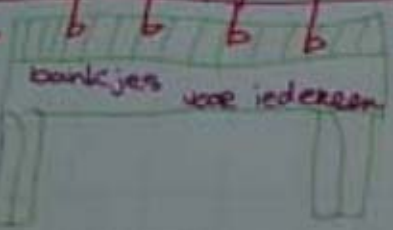 b b b b
bankjes voor iedereen